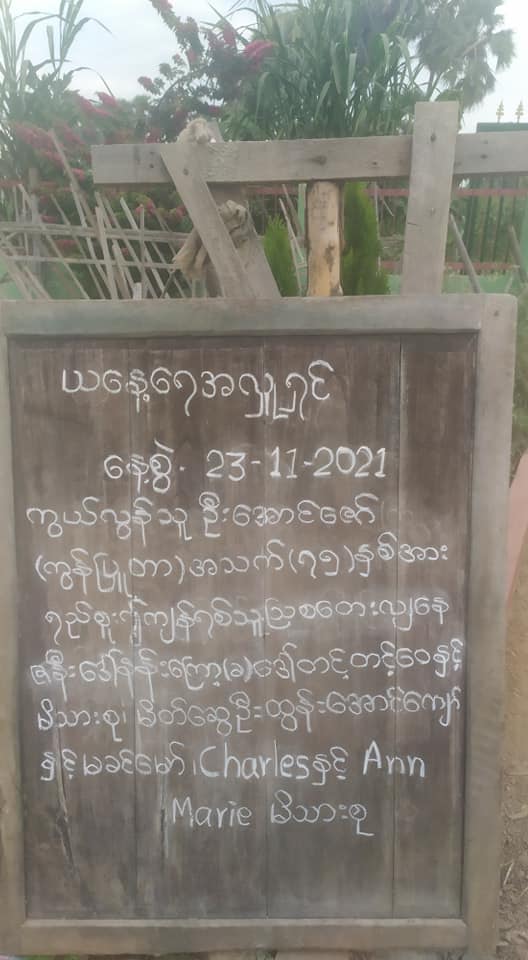 ယနေ့ရေအလှူရှင်
နေ့စွဲ. 23-11-2021
ကွယ်လွန်သူ ဦးအောင်ဇော်
(ကွန်မြူတာ) အသက်(၇၅)နှစ်အား
ရည်စူး၍ကျန်ရစ်သူသြစတေးလျနေ
ဇနီးဒေါ်နန်းကြော့(ခ)ဒေါ်တင့်တင့်ဝေနှင့်
မိသားစု၊ မိတ်ဆွေဦးထွန်းအောင်ကျော်
နှင့်မခင်မော်၊ Charlesနှင့် Ann
Marie မိသားစု